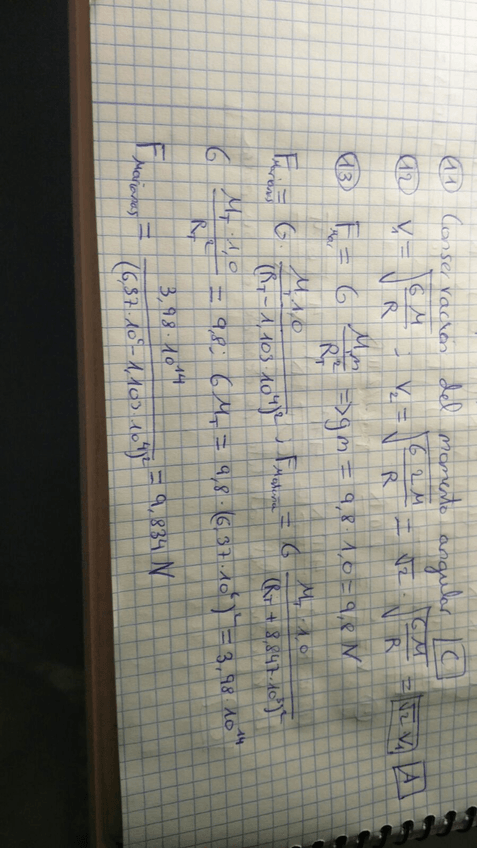 ⑪ Conservación del momento angular C
⑫ V₁ = √(GM/R) ; V₂ = √(G2M/R) = √2 · √(GM/R) = √2 V₁ A
⑬ F = G M_T m/R_T² => gm = 9,8 · 1,0 = 9,8 N
F = G · M_T 1,0/(R_T - 1,103 · 10⁴)² ; F = G M_T · 1,0/(R_T + 8,847 · 10³)²
G M_T · 1,0/R_T² = 9,8 ; G M_T = 9,8 · (6,37 · 10⁶)² = 3,98 · 10¹⁴
F_Marianas = 3,98 · 10¹⁴/(6,37 · 10⁶ - 1,103 · 10⁴)² = 9,834 N